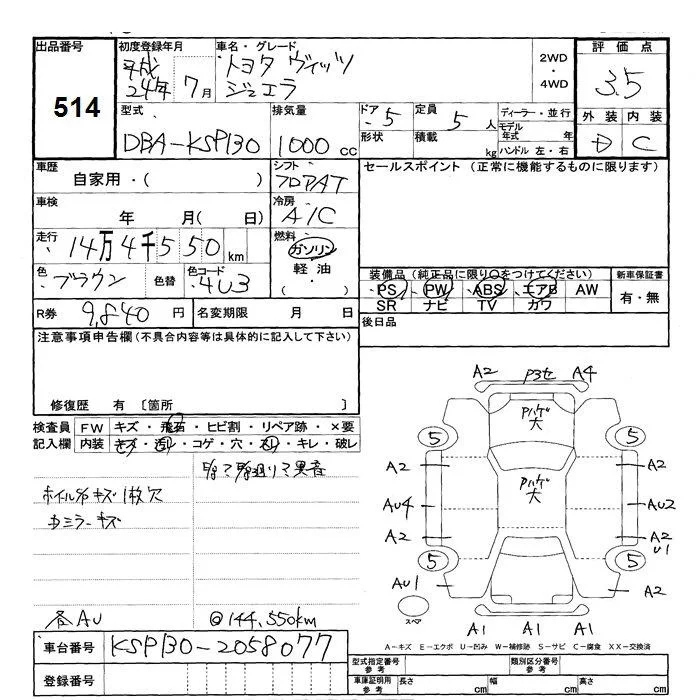 出品番号 514
初度登録年月 平成 24年 7月
車名・グレード トヨタ ヴィッツ
ジュエラ
2WD
・
4WD
評価点 3.5
外装 内装
D C
型式 DBA-KSP130
排気量 1000 cc
ドア・5
形状
定員 5 人
積載 kg
ディーラー・並行
モデル年式 年
ハンドル 左・右
車歴 自家用・( )
シフト・フロアAT
セールスポイント (正常に機能するものに限ります)
車検 年 月( 日)
冷房・A/C
走行・14万4千550km
燃料 ガソリン
・
軽油
・
( )
色・ブラウン 色替 色コード・4U3
装備品 (純正品に限り○をつけてください)
・PS・PW・ABS・エアB AW
SR ナビ TV カワ
新車保証書
有・無
R券 9,840 円 名変期限 月 日
後日品
注意事項申告欄(不具合内容等は具体的に記入して下さい)
修復歴 有 [箇所 ]
検査員記入欄
FW キズ・飛石・ヒビ割・リペア跡・×要
内装 キズ・・コゲ・穴・・キレ・破レ
ホイルS/Cキズ 1枚欠
ミラーキズ
異音
各AU
@144,550km
A2 P3セ A4
Pハゲ大
5 5
A2 A2
Pハゲ大
AU4 AU2
A2 A2
U1
5 5
AU1 A2
スペア
A1 A1 A1
A-キズ E-エクボ U-凹み W-補修跡 S-サビ C-腐食 XX-交換済
車台番号 KSP130-2058077
登録番号
型式指定番号 参考 類別区分番号 参考
車庫証明用 参考 長さ cm 幅 cm 高さ cm